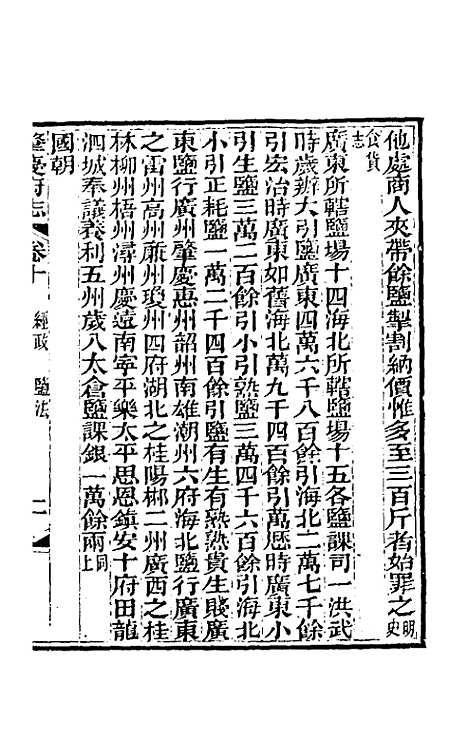 他處商人夾帶餘鹽掣割納價惟多至三百斤者始罪之明史
食貨志
廣東所轄鹽場十四海北所轄鹽場十五各鹽課司一洪武
時歲辦大引鹽廣東四萬六千八百餘引海北二萬七千餘
引宏治時廣東如舊海北萬九千四百餘引萬歷時廣東小
引生鹽三萬二百餘引小引熟鹽三萬四千六百餘引海北
小引正耗鹽一萬二千四百餘引鹽有生有熟熟貴生賤廣
東鹽行廣州肇慶惠州韶州南雄潮州六府海北鹽行廣東
之雷州高州廉州瓊州四府湖北之桂陽郴二州廣西之桂
林柳州梧州潯州慶遠南寧平樂太平思恩鎮安十府田龍
泗城奉議養利五州歲入太倉鹽課銀一萬餘兩同上
國朝
肇慶府志 卷十 經政 鹽法 二